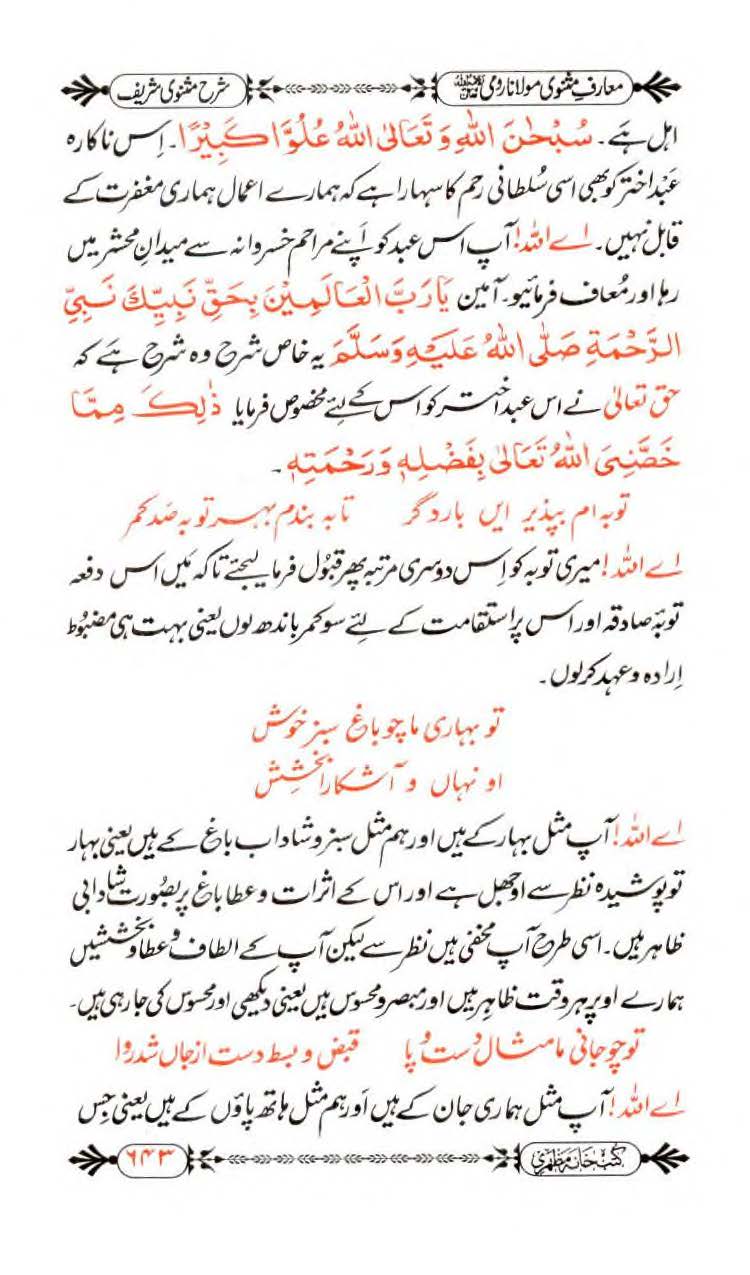 معارفِ مثنوی مولانا رومی شرح مثنوی شریف
اہل ہے۔ سُبْحٰنَ اللہِ وَ تَعَالٰی اللہُ عُلُوًّا كَبِيْرًا۔ اِس ناکارہ
عبد اختر کو بھی اسی سُلطانی رحم کا سہارا ہے کہ ہمارے اعمال ہماری مغفرت کے
قابل نہیں۔ اے اللہ! آپ اس عبد کو اپنے مراحم خسروانہ سے میدانِ محشر میں
رہا اور مُعاف فرمائیو۔ آمین يَا رَبَّ الْعَالَمِيْنَ بِحَقِّ نَبِيِّكَ نَبِيِّ
الرَّحْمَةِ صَلَّى اللهُ عَلَيْهِ وَسَلَّمَ یہ خاص شرح وہ شرح ہے کہ
حق تعالیٰ نے اس عبد اختر کو اس کے لئے مخصوص فرمایا ذٰلِكَ مِمَّا
خَصَّنِيَ اللهُ تَعَالٰى بِفَضْلِهٖ وَرَحْمَتِهٖ۔
توبہ ام بپذیر ایں بار دگر تابہ بندم بہر توبہ صد کمر
اے اللہ! میری توبہ کو اِس دوسری مرتبہ پھر قبُول فرما لیجئے تاکہ مَیں اس دفعہ
توبۂ صادقہ اور اس پر استقامت کے لئے سو کمر باندھ لوں یعنی بہت ہی مضبُوط
اِرادہ و عہد کرلوں۔
تو بہاری ما چو باغِ سبز خوش
او نہاں و آشکارا بخشِش
اے اللہ! آپ مثل بہار کے ہیں اور ہم مثل سبز و شاداب باغ کے ہیں یعنی بہار
تو پوشیدہ نظر سے اوجھل ہے اور اس کے اثرات و عطا باغ پر بصُورت شادابی
ظاہر ہیں۔ اسی طرح آپ مخفی ہیں نظر سے لیکن آپ کے الطاف و عطا و بخششیں
ہمارے اوپر ہر وقت ظاہر ہیں اور مبصر و محسوس ہیں یعنی دیکھی اور محسوس کی جا رہی ہیں۔
تو چو جانی ما مثال دست و پا قبض و بسط دست از جاں شد روا
اے اللہ! آپ مثل ہماری جان کے ہیں اَور ہم مثل ہاتھ پاؤں کے ہیں یعنی جِس
کتب خانہ مظہری ۶۴۳